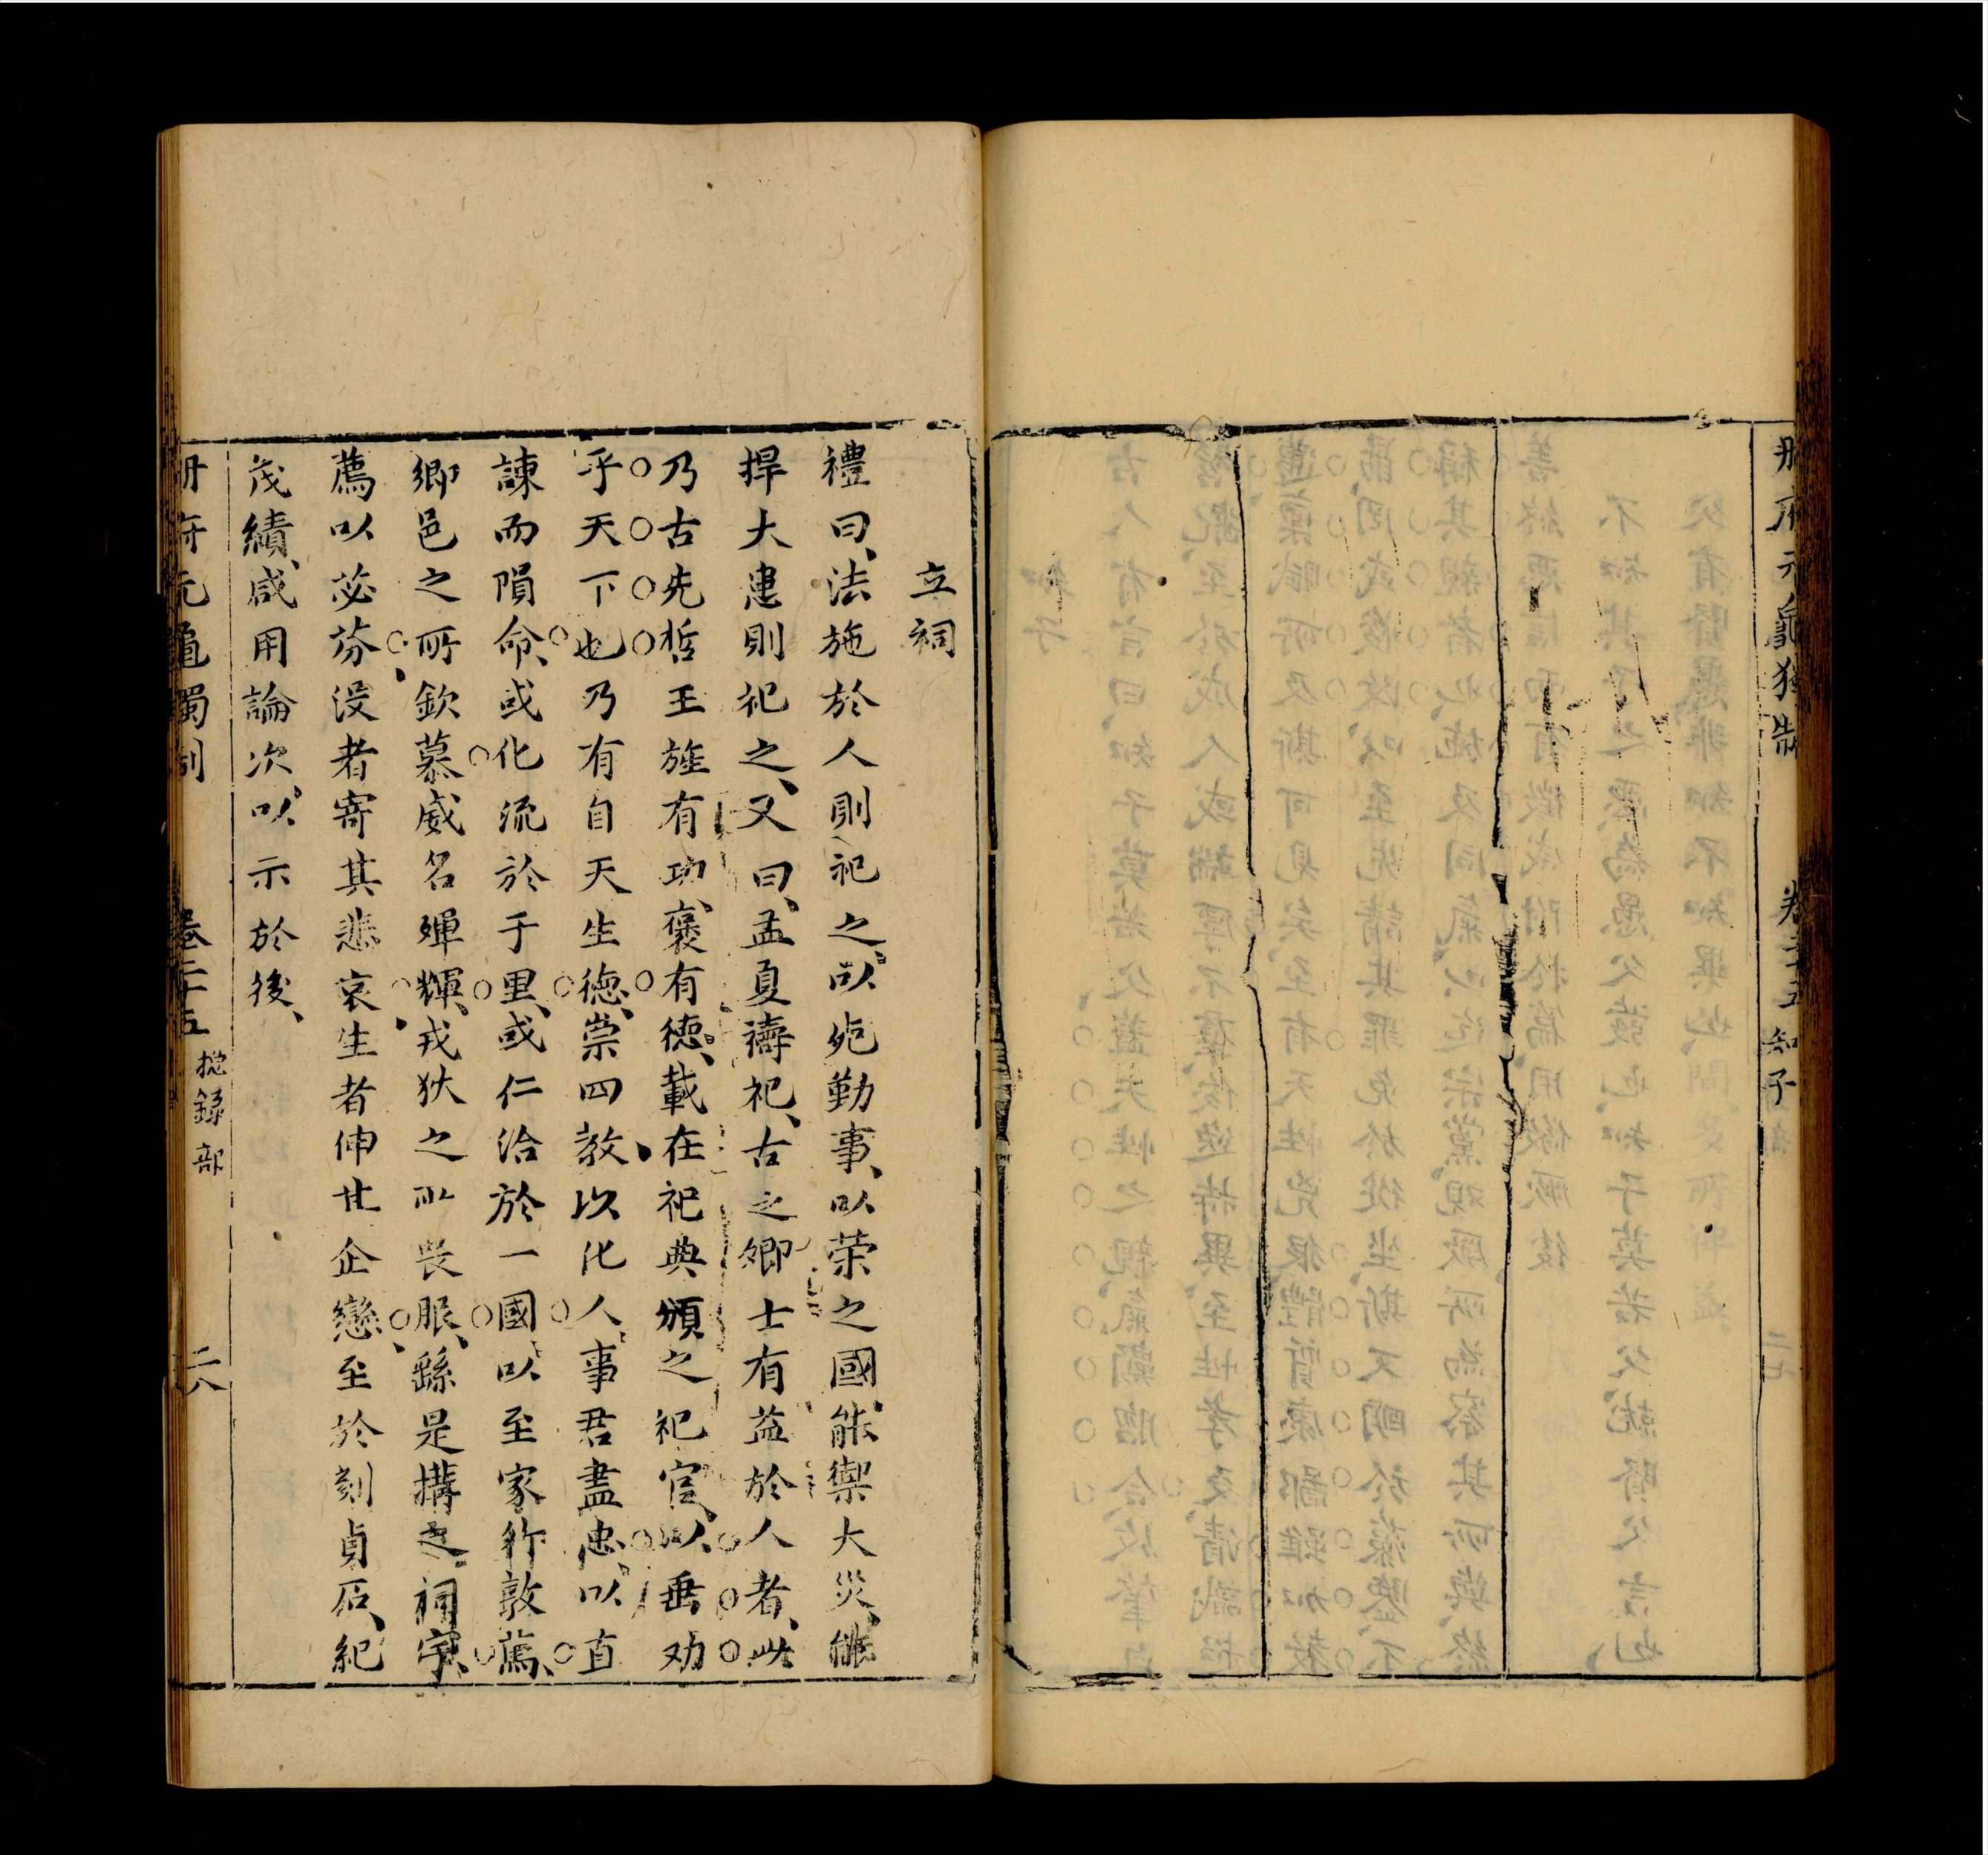 冊府元龜獨制
卷二十五
知子
立祠
禮曰、法施於人則祀之、以死勤事、以荣之國、能禦大災、能
捍大患則祀之、又曰、孟夏禱祀、古之卿士有益於人者、此
乃古先哲王旌有功、褒有德、載在祀典頒之祀官、以垂劝
乎天下也乃有自天生德、崇四教、以化人、事君盡忠、以直
諫而隕命、或化流於千里、或仁洽於一國、以至家行敦篤、
鄉邑之所欽慕威名煇輝、戎狄之所畏服、繇是搆之祠宇、
薦以苾芬没者寄其悲哀生者伸其企戀至於刻貞石、紀
茂績、咸用論次以示於後、
冊府元龜獨制
卷二十五
捴錄部
二八